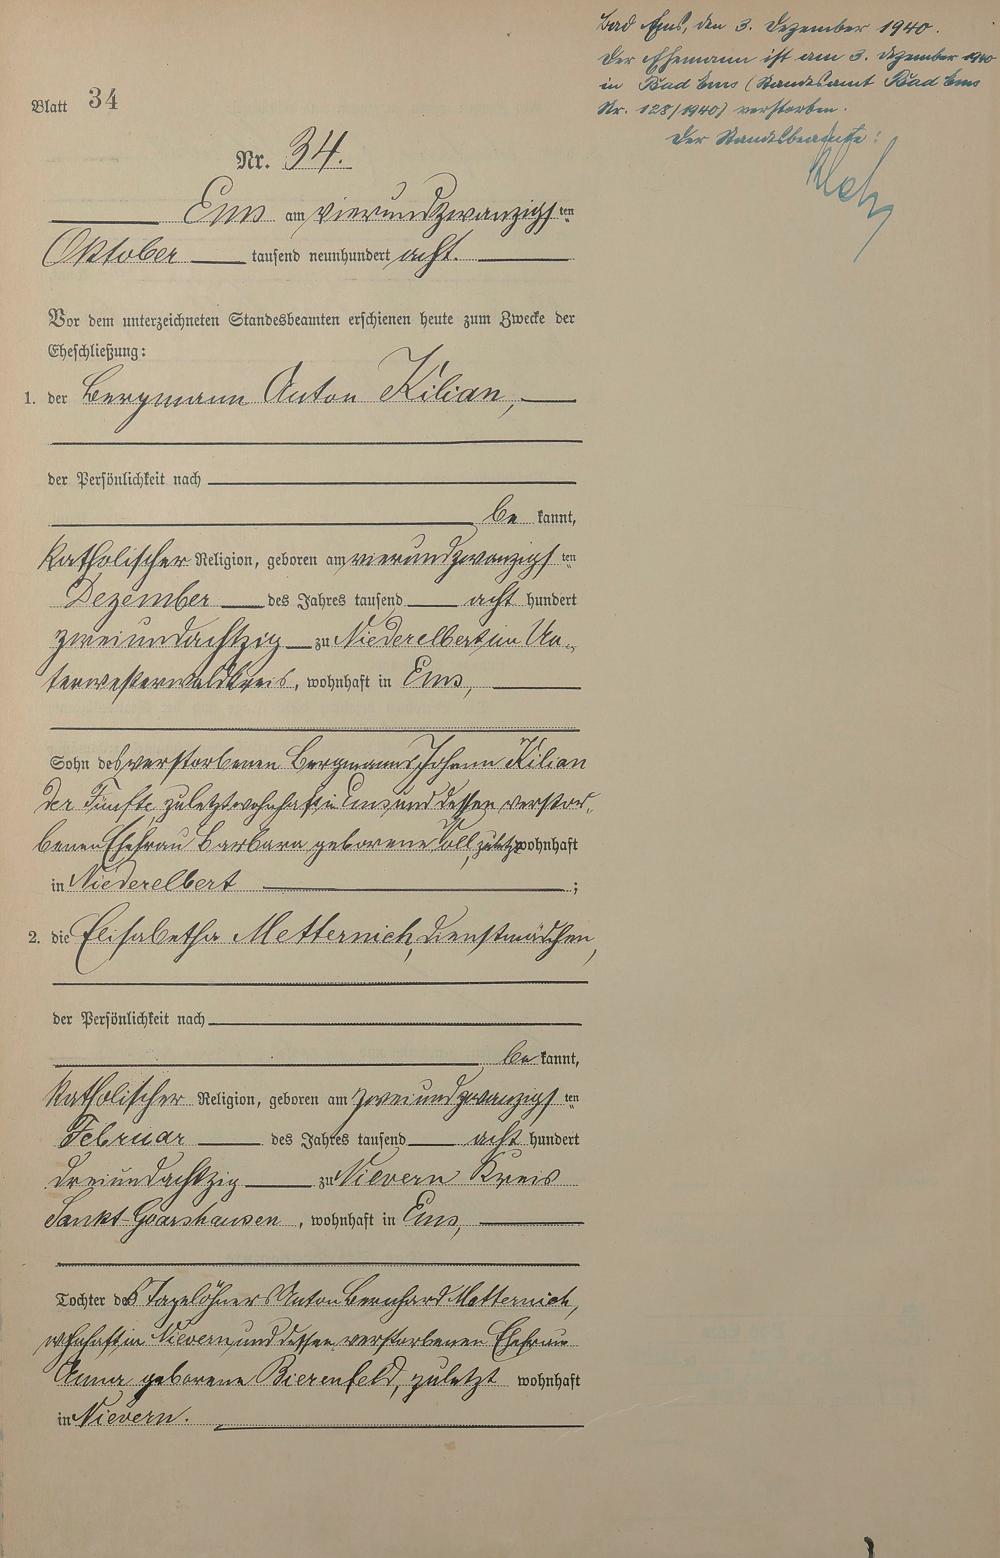 Bad Ems, den 3. Dezember 1940.
Der Ehemann ist am 3. Dezember 1940
in Bad Ems (Standesamt Bad Ems
Nr. 128/1940) verstorben.
Der Standesbeamte:
Blatt 34
Nr. 34.
Ems am vierundzwanzigsten
Oktober tausend neunhundert acht.
Vor dem unterzeichneten Standesbeamten erschienen heute zum Zwecke der
Eheschließung:
1. der Bergmann Anton Kilian,
der Persönlichkeit nach
be kannt,
katholischer Religion, geboren am vierundzwanzigsten
Dezember des Jahres tausend acht hundert
zweiundachtzig zu Niederelbert im Un-
terwesterwaldkreis, wohnhaft in Ems,
Sohn des verstorbenen Bergmanns Johann Kilian
der Fünfte, zuletzt wohnhaft in Ems und dessen verstor-
benen Ehefrau Barbara geborene zuletzt wohnhaft
in Niederelbert ;
2. die Elisabetha Metternich, Dienstmädchen,
der Persönlichkeit nach
be kannt,
katholischer Religion, geboren am zweiundzwanzigsten
Februar des Jahres tausend acht hundert
dreiundachtzig zu Nievern Kreis
Sankt-Goarshausen, wohnhaft in Ems,
Tochter des Tagelöhners Anton Bernhard Metternich,
wohnhaft in Nievern, und dessen verstorbenen Ehefrau
Anna geborene Bierenfeld, zuletzt wohnhaft
in Nievern.